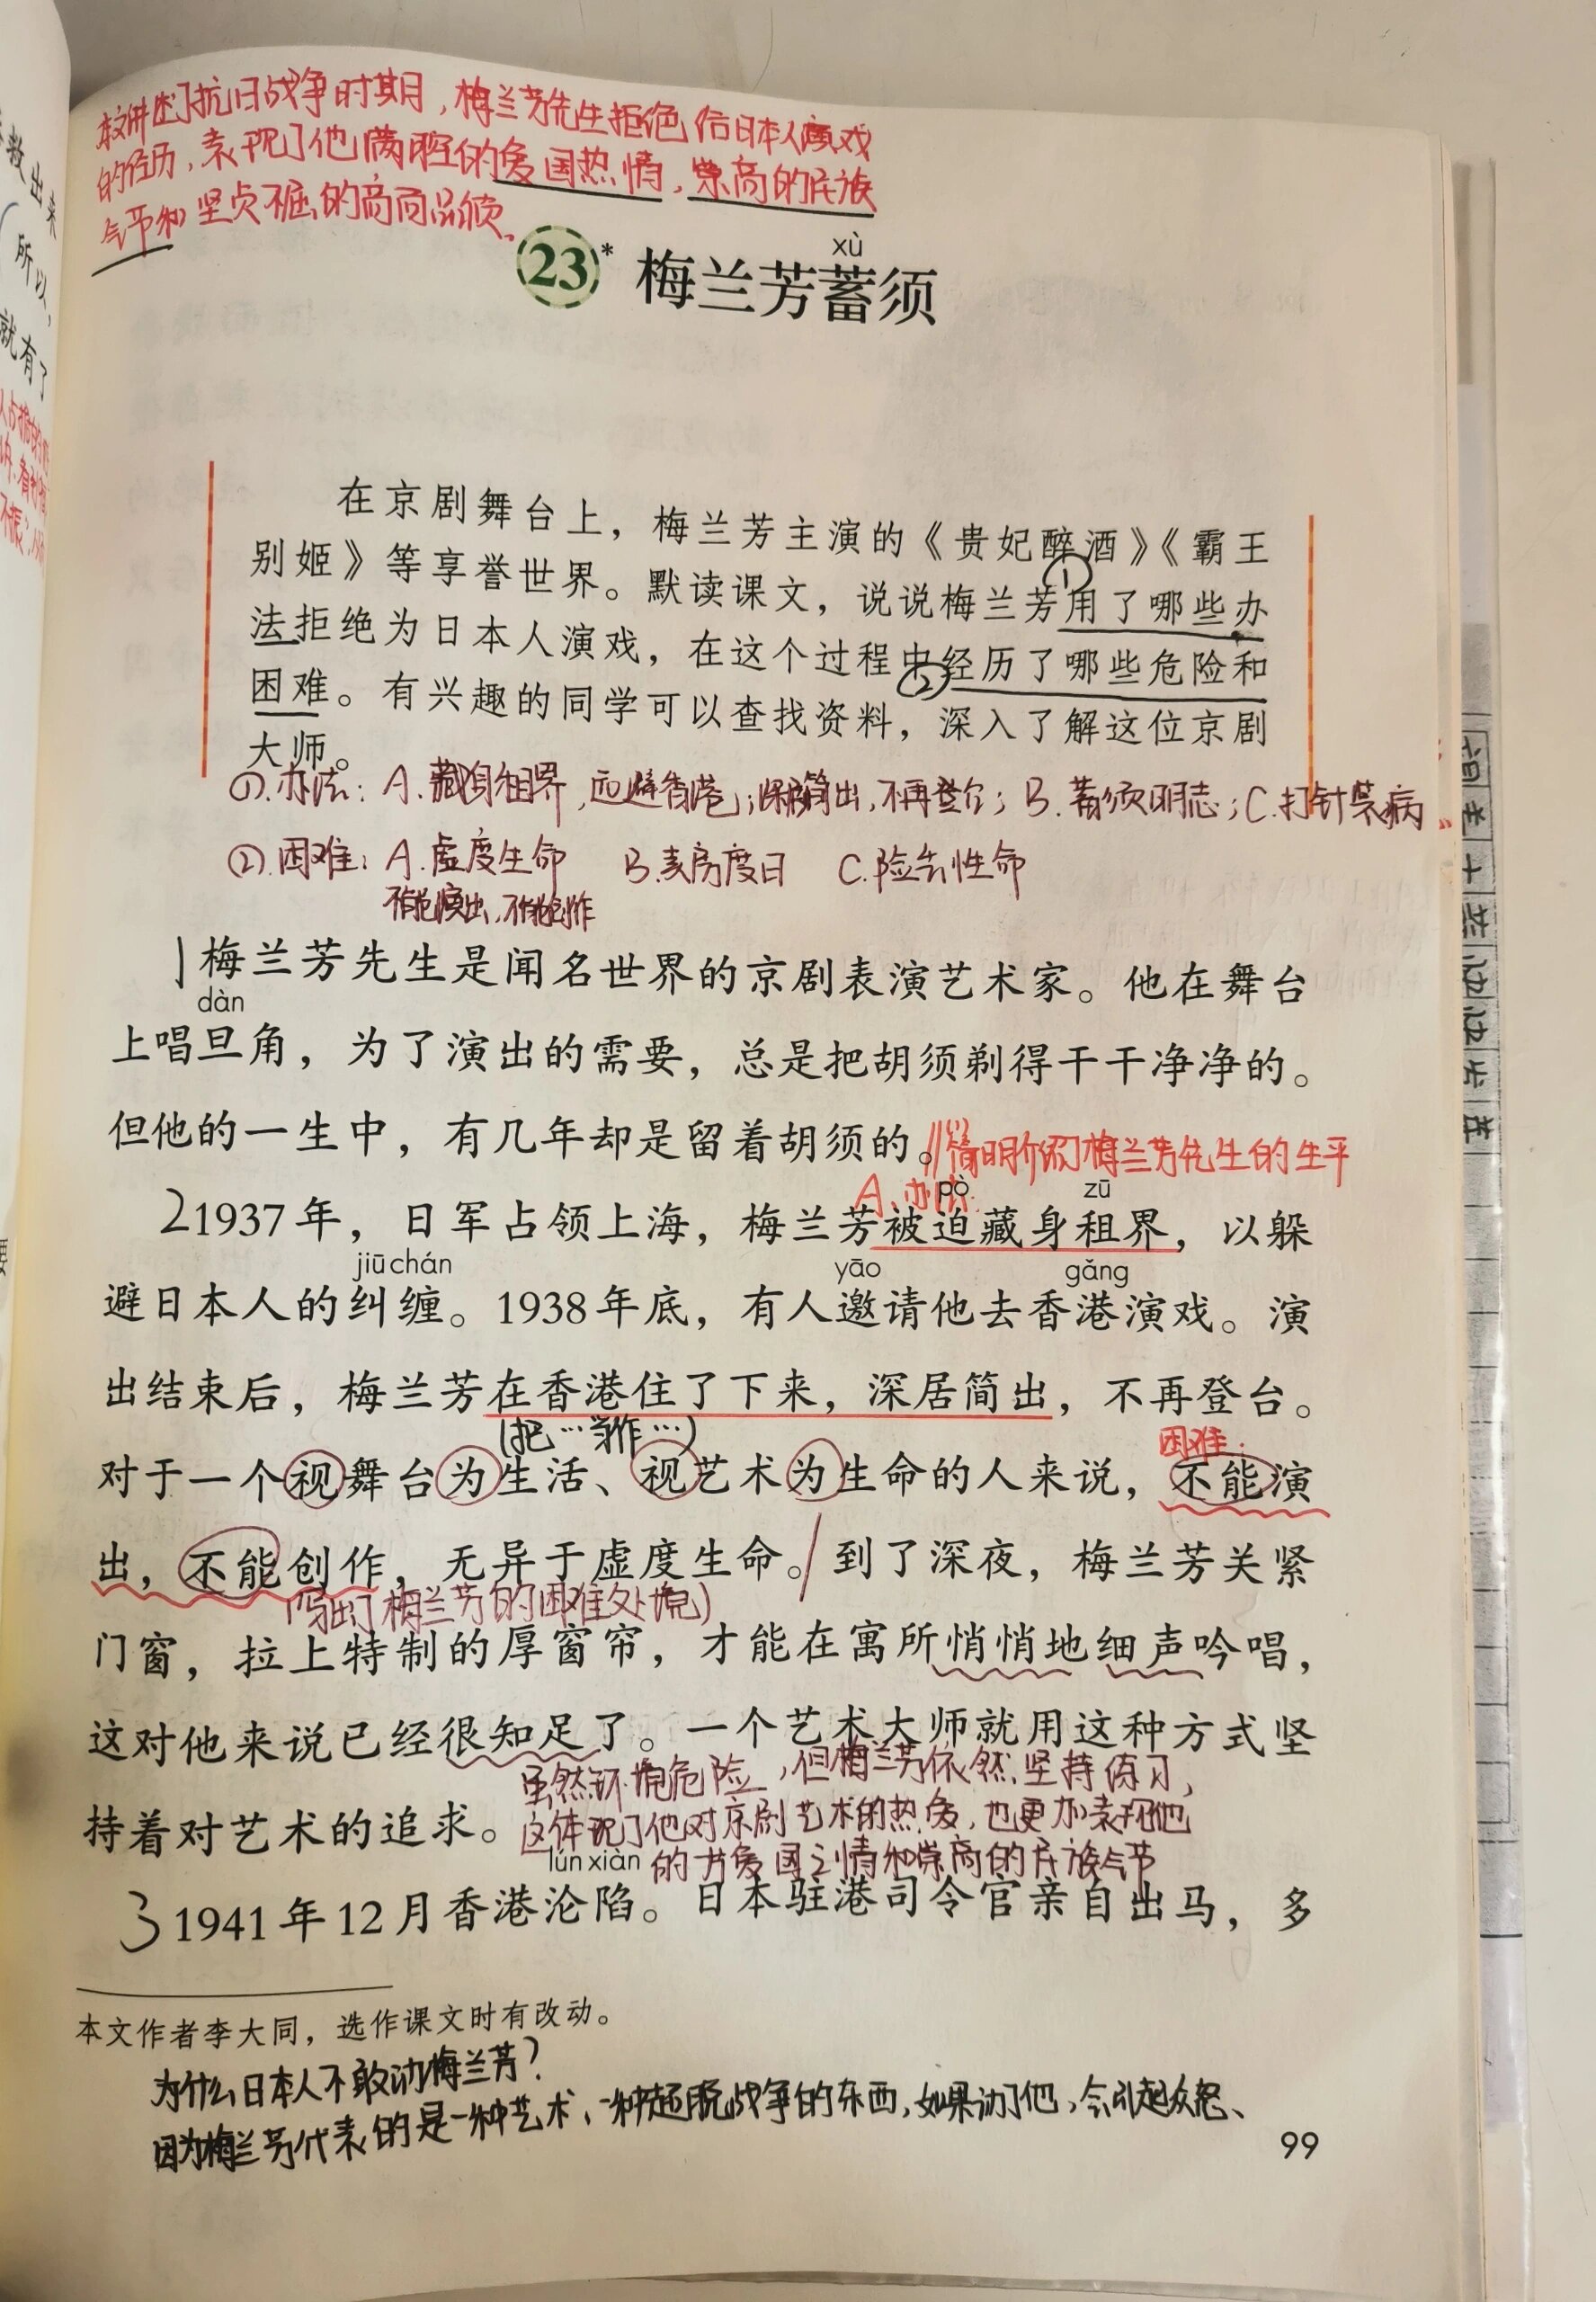 本文讲述了抗日战争时其月，梅兰芳先生拒绝给日本人演戏
的经历，表现了他满腔的爱国热情，崇高的民族
气节和坚贞不屈的高尚品质。
xù
23* 梅兰芳蓄须
在京剧舞台上，梅兰芳主演的《贵妃醉酒》《霸王
别姬》等享誉世界。默读课文，说说梅兰芳①用了哪些办
法拒绝为日本人演戏，在这个过程中②经历了哪些危险和
困难。有兴趣的同学可以查找资料，深入了解这位京剧
大师。
①.办法：A.藏身租界，远避香港；深居简出，不再登台；B.蓄须明志；C.打针装病
②.困难：A.虚度生命 B.卖房度日 C.险失性命
不能演出，不能创作
1 梅兰芳先生是闻名世界的京剧表演艺术家。他在舞台
dàn
上唱旦角，为了演出的需要，总是把胡须剃得干干净净的。
但他的一生中，有几年却是留着胡须的。简明介绍了梅兰芳先生的生平
A.办法： pò zū
2 1937年，日军占领上海，梅兰芳被迫藏身租界，以躲
jiūchán yāo gǎng
避日本人的纠缠。1938年底，有人邀请他去香港演戏。演
出结束后，梅兰芳在香港住了下来，深居简出，不再登台。
(把…当作…) 困难：
对于一个视舞台为生活、视艺术为生命的人来说，不能演
出，不能创作，无异于虚度生命。到了深夜，梅兰芳关紧
(写出了梅兰芳的困难处境)
门窗，拉上特制的厚窗帘，才能在寓所悄悄地细声吟唱，
这对他来说已经很知足了。一个艺术大师就用这种方式坚
虽然环境危险，但梅兰芳依然坚持练习，
持着对艺术的追求。这体现了他对京剧艺术的热爱，也更加表现他
lúnxiàn 的爱国之情和崇高的民族气节
3 1941年12月香港沦陷。日本驻港司令官亲自出马，多
本文作者李大同，选作课文时有改动。
为什么日本人不敢动梅兰芳？
因为梅兰芳代表的是一种艺术、一种超脱战争的东西，如果动了他，会引起众怒、
99